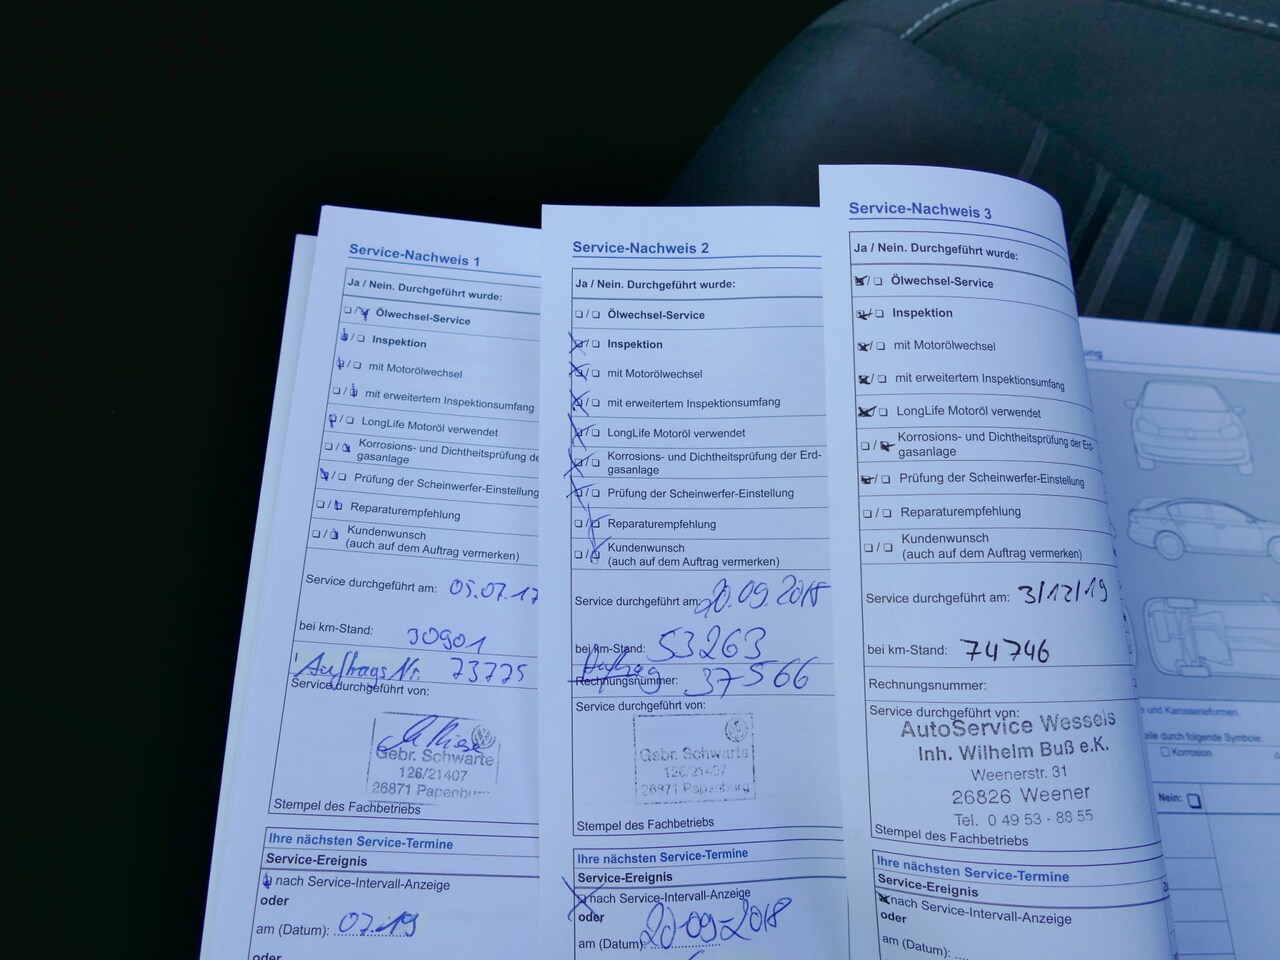 Service-Nachweis 1
Ja / Nein. Durchgeführt wurde:
Ölwechsel-Service
Inspektion
mit Motorölwechsel
mit erweitertem Inspektionsumfang
LongLife Motoröl verwendet
Korrosions- und Dichtheitsprüfung de
gasanlage
Prüfung der Scheinwerfer-Einstellung
Reparaturempfehlung
Kundenwunsch
(auch auf dem Auftrag vermerken)
Service durchgeführt am: 05.07.17
bei km-Stand: 30901
Auftrags Nr. 73775
Service durchgeführt von:
Gebr. Schwarte
126/21407
26871 Papenburg
Stempel des Fachbetriebs
Ihre nächsten Service-Termine
Service-Ereignis
nach Service-Intervall-Anzeige
oder
am (Datum): 07.19
oder
Service-Nachweis 2
Ja / Nein. Durchgeführt wurde:
Ölwechsel-Service
Inspektion
mit Motorölwechsel
mit erweitertem Inspektionsumfang
LongLife Motoröl verwendet
Korrosions- und Dichtheitsprüfung der Erd-
gasanlage
Prüfung der Scheinwerfer-Einstellung
Reparaturempfehlung
Kundenwunsch
(auch auf dem Auftrag vermerken)
Service durchgeführt am: 20.09.2018
bei km-Stand: 53263
Auftrag
Rechnungsnummer: 37566
Service durchgeführt von:
Gebr. Schwarte
126/21407
26871 Papenburg
Stempel des Fachbetriebs
Ihre nächsten Service-Termine
Service-Ereignis
nach Service-Intervall-Anzeige
oder
am (Datum): 20-09-2018
Service-Nachweis 3
Ja / Nein. Durchgeführt wurde:
Ölwechsel-Service
Inspektion
mit Motorölwechsel
mit erweitertem Inspektionsumfang
LongLife Motoröl verwendet
Korrosions- und Dichtheitsprüfung der Erd-
gasanlage
Prüfung der Scheinwerfer-Einstellung
Reparaturempfehlung
Kundenwunsch
(auch auf dem Auftrag vermerken)
Service durchgeführt am: 3/12/19
bei km-Stand: 74746
Rechnungsnummer:
Service durchgeführt von:
AutoService Wessels
Inh. Wilhelm Buß e.K.
Weenerstr. 31
26826 Weener
Tel. 0 49 53 - 88 55
Stempel des Fachbetriebs
Ihre nächsten Service-Termine
Service-Ereignis
nach Service-Intervall-Anzeige
oder
am (Datum):
und Karosserieformen.
durch folgende Symbole:
Korrosion
Nein: